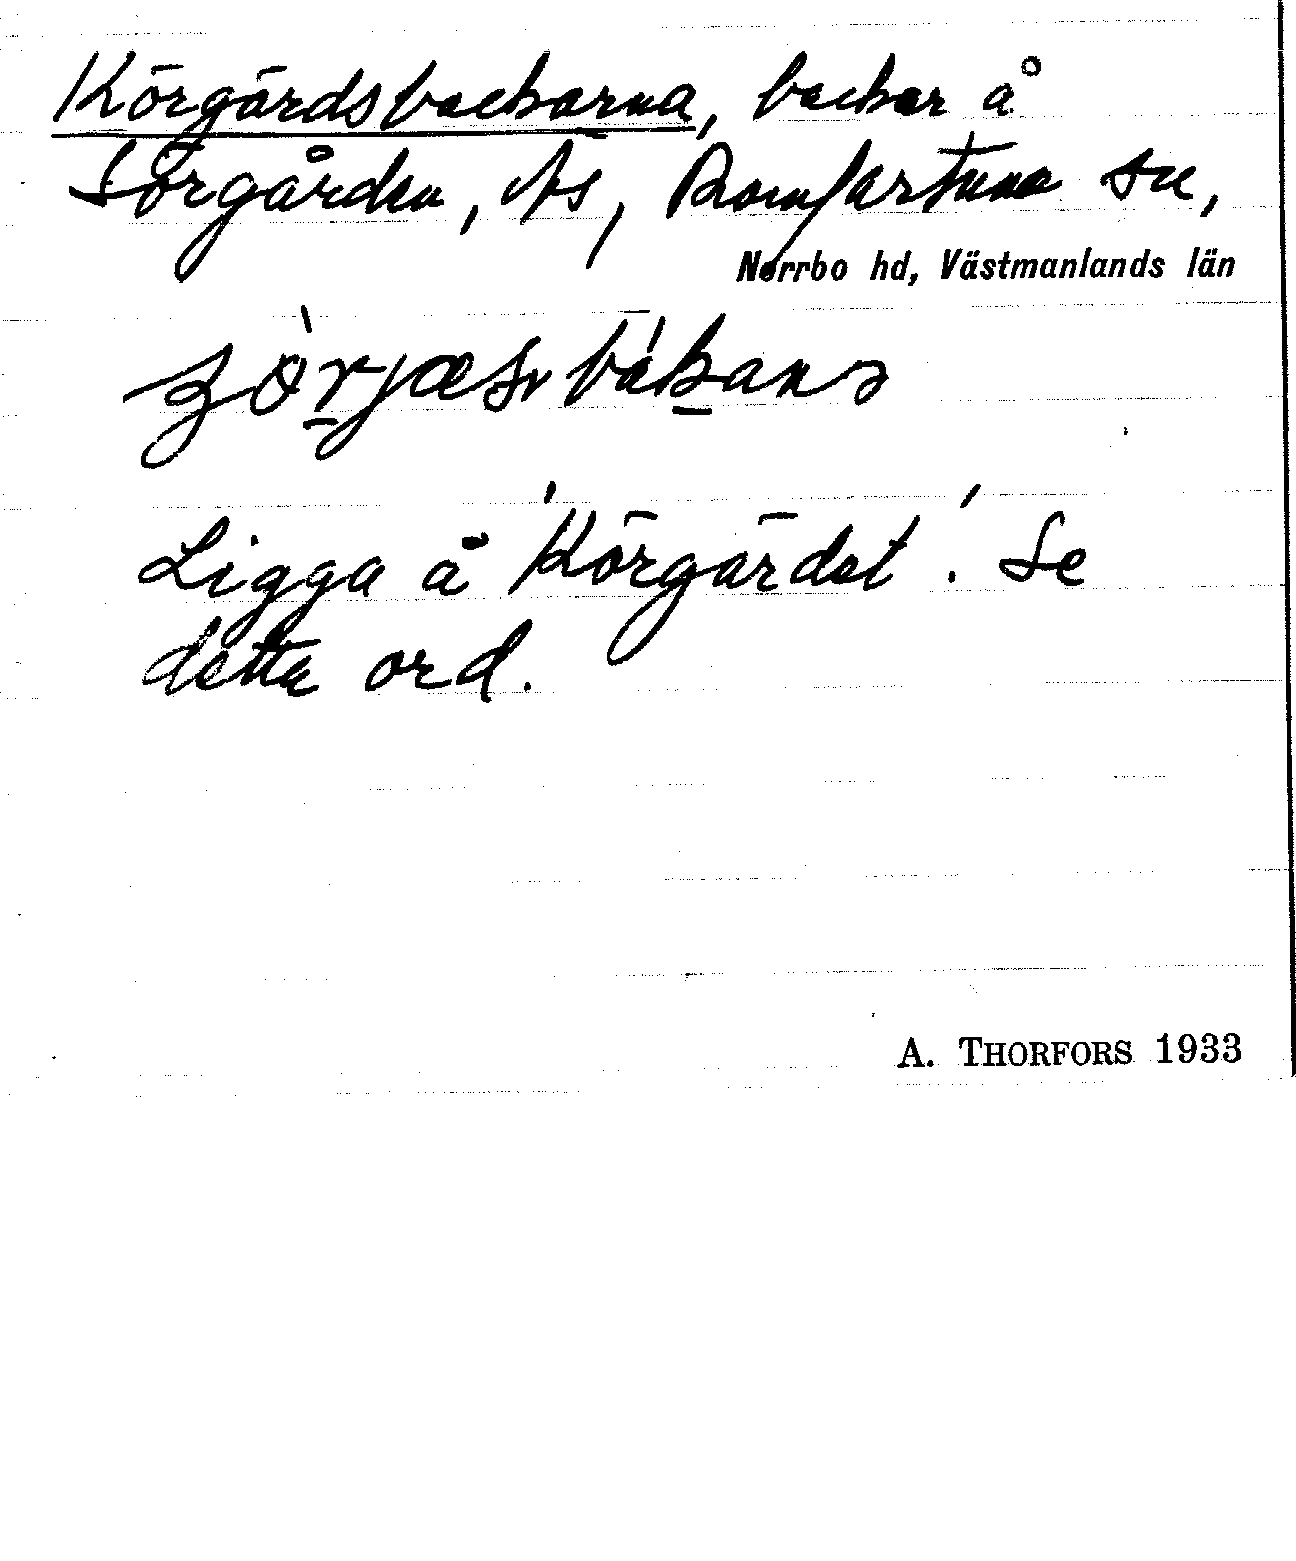 Körgärdsbackarna, backar å
Sörgården, Ås, Romfartuna sn,
Norrbo hd, Västmanlands län
Ligga å 'Körgärdet'. Se
detta ord.
A. THORFORS 1933